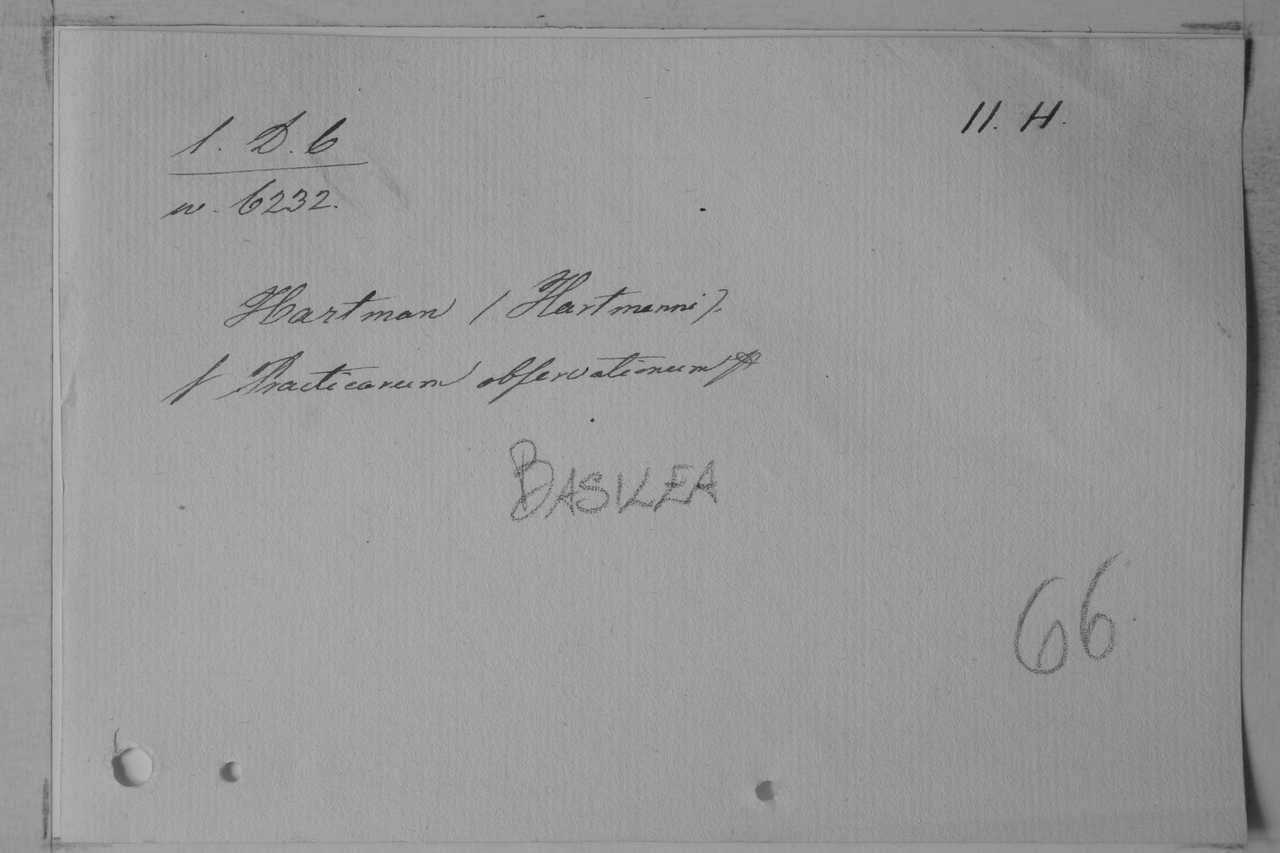 1. D. 6
11. H.
n. 6232.
Hartman (Hartmanni).
Practicarum observationum
BASILEA
66